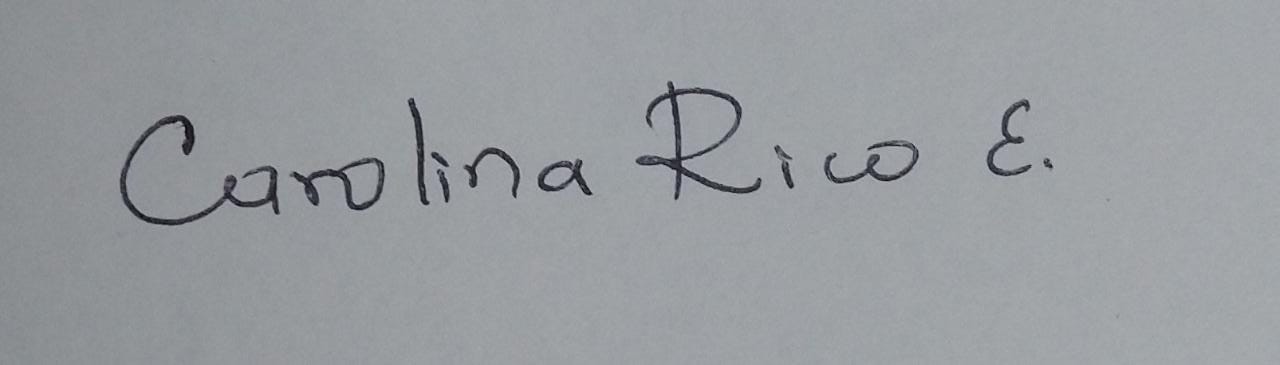 Carolina Rico E.